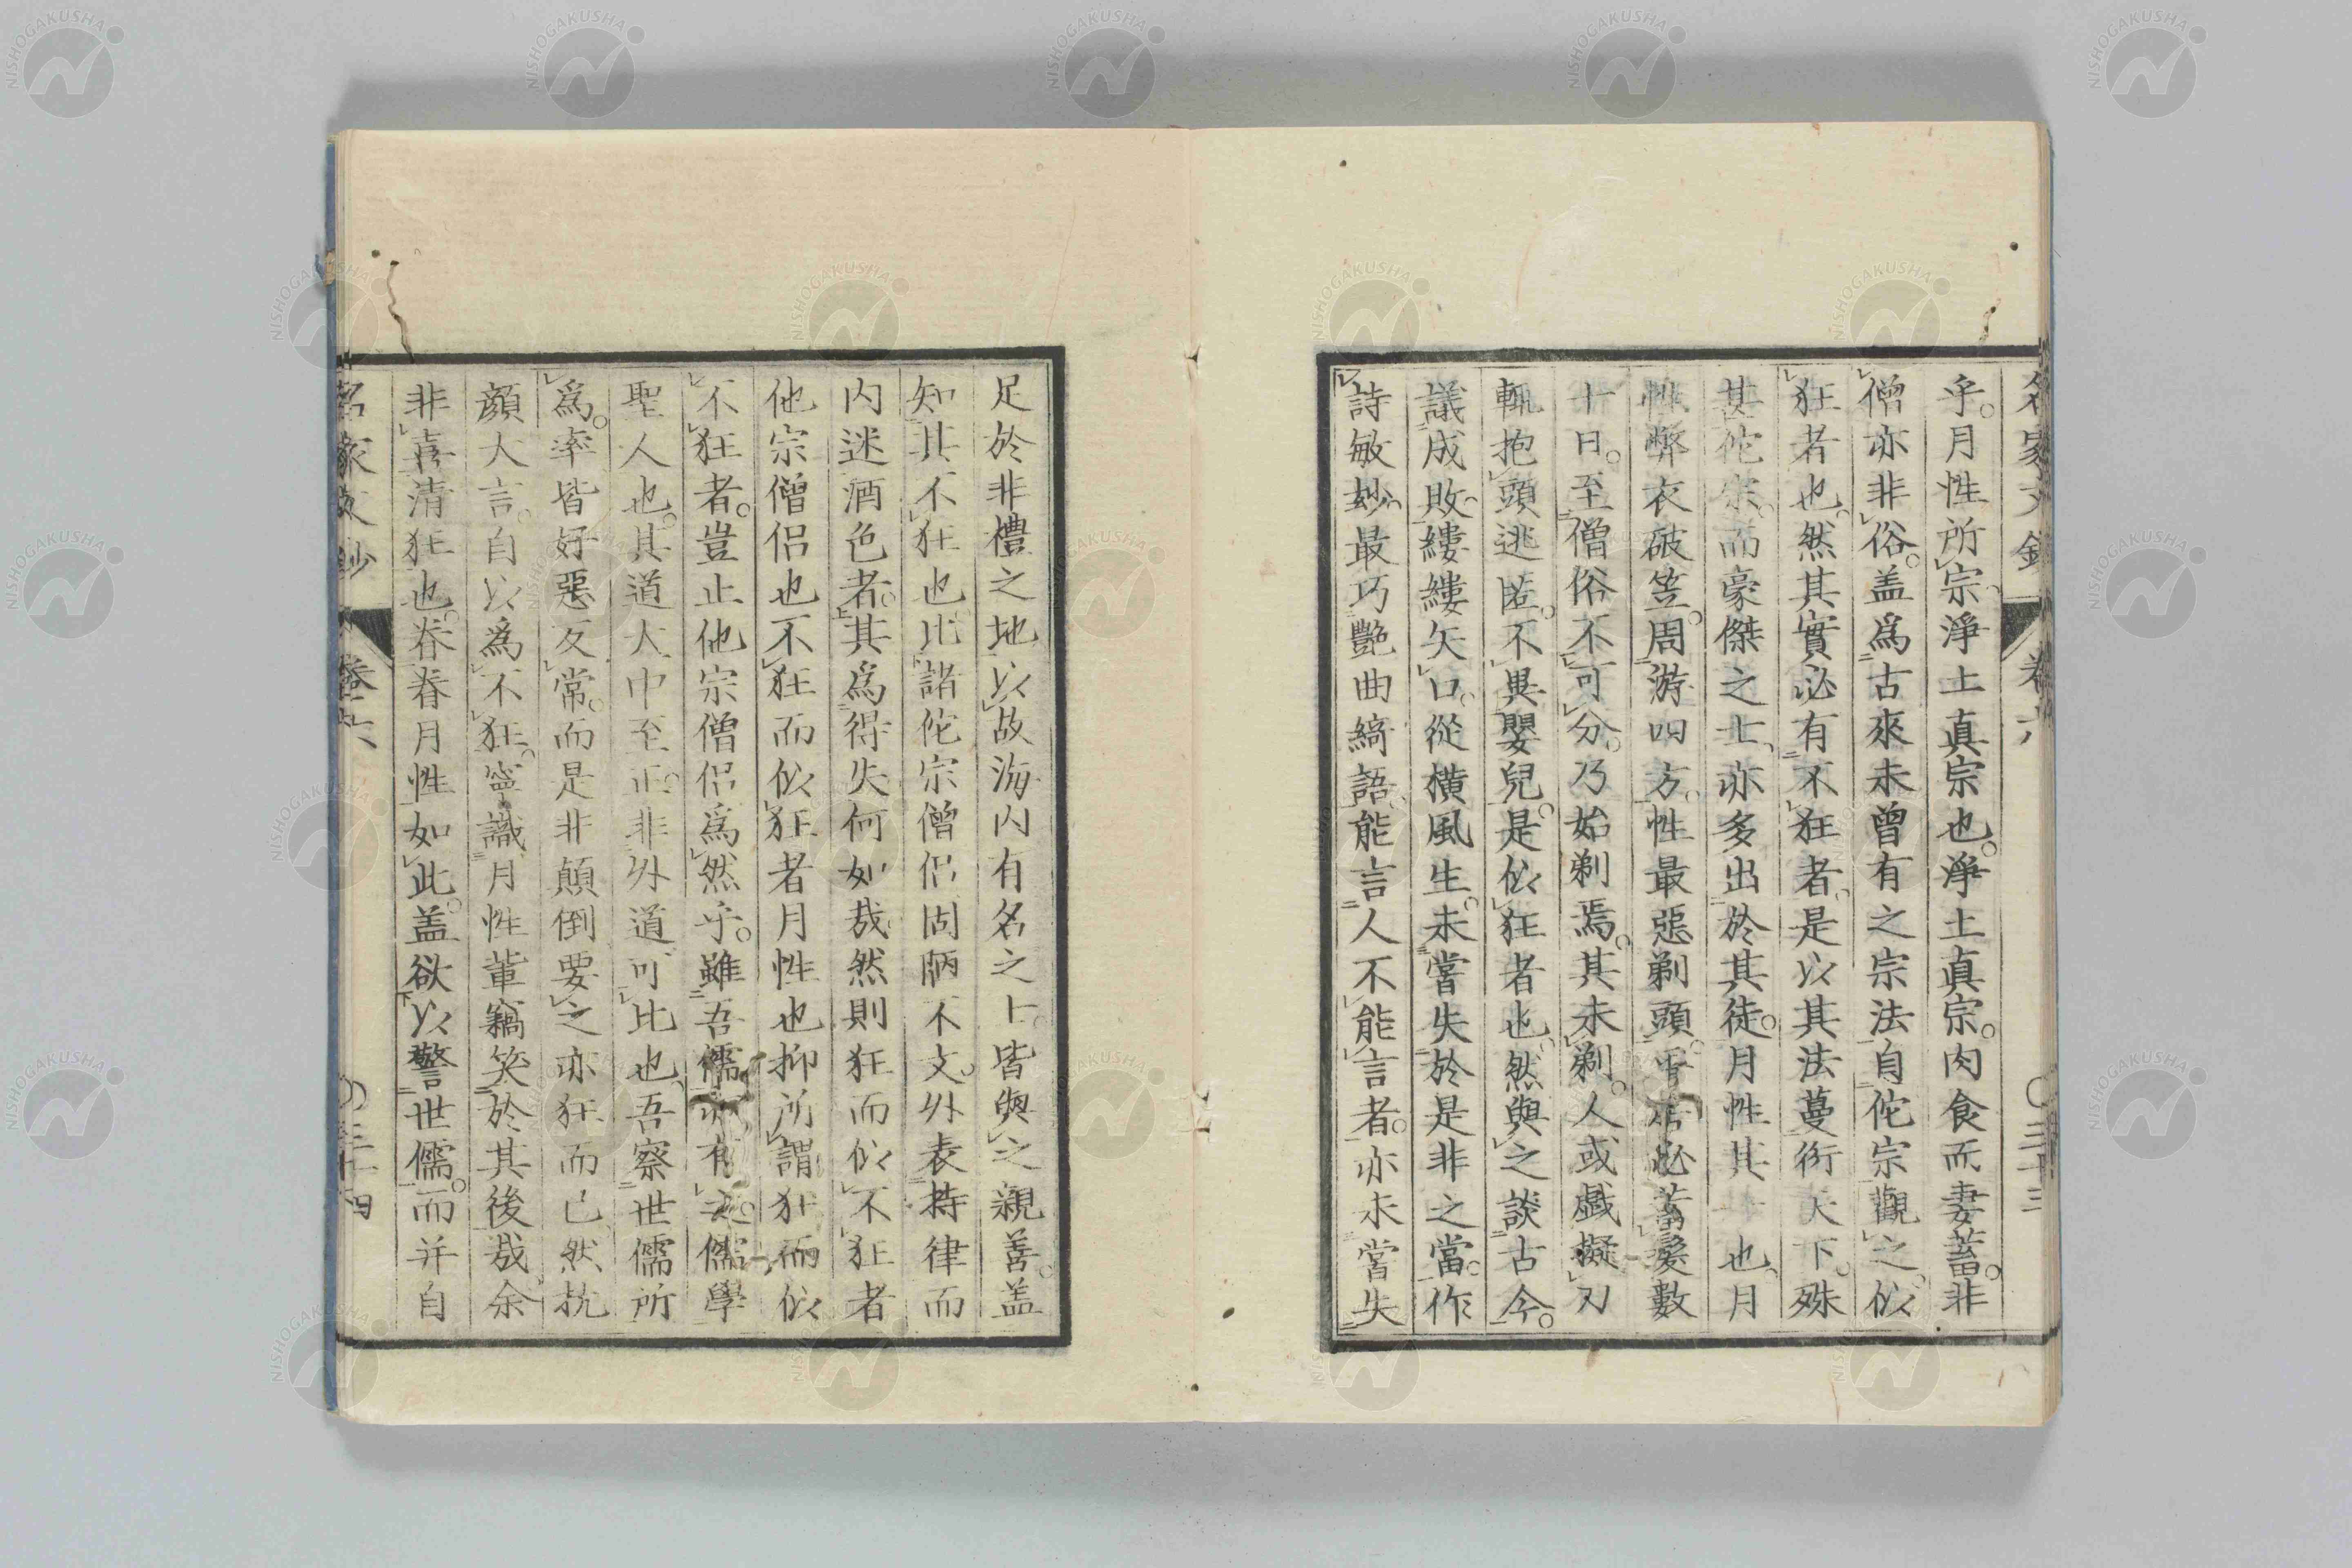 名家文鈔 卷六 ○三十三
乎月性所宗淨土真宗也淨土真宗肉食而妻蓄非
僧亦非俗盖爲古來未曾有之宗法自佗宗觀之似
狂者也然其實必有不狂者是以其法蔓衍天下殊
其佗宗而豪傑之士亦多出於其徒月性其一也月
性弊衣破笠周游四方性最惡剃頭平居必蓄髮數
十日至僧俗不可分乃始剃焉其未剃人或戲擬刀
輒抱頭逃匿不異嬰兒是似狂者也然與之談古今
議成敗縷縷矢口從橫風生未嘗失於是非之當作
詩敏妙最巧艷曲綺語能言人不能言者亦未嘗失
足於非禮之地以故海內有名之士皆與之親善盖
知其不狂也比諸佗宗僧侶固陋不文外表持律而
內迷酒色者其爲得失何如哉然則狂而似不狂者
他宗僧侶也不狂而似狂者月性也抑所謂狂而似
不狂者豈止他宗僧侶爲然乎雖吾儒亦有之儒學
聖人也其道大中至正非外道可比也吾察世儒所
爲率皆好惡反常而是非顛倒要之亦狂而已然抗
顏大言自以爲不狂寧識月性輩竊笑於其後哉余
非喜清狂也眷眷月性如此盖欲以警世儒而并自
名家文鈔 卷六 ○三十四
NISHOGAKUSHA